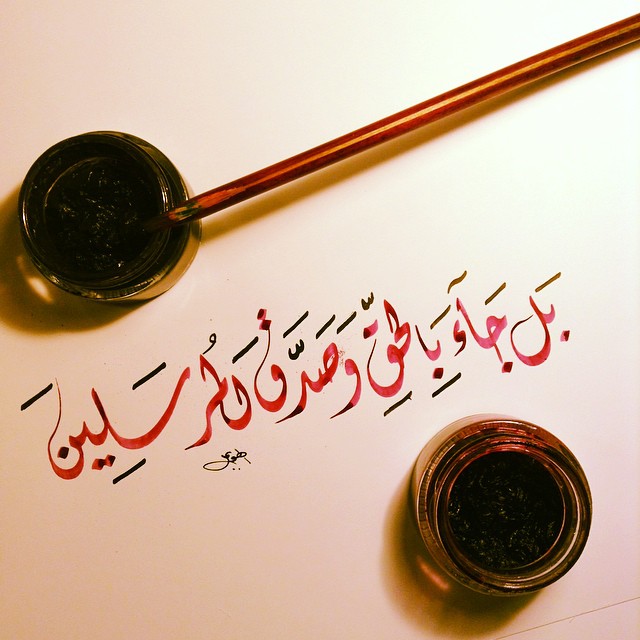 بَل جَآءَ بِالحَقِّ وَصَدَّقَ المُرسَلِينَ